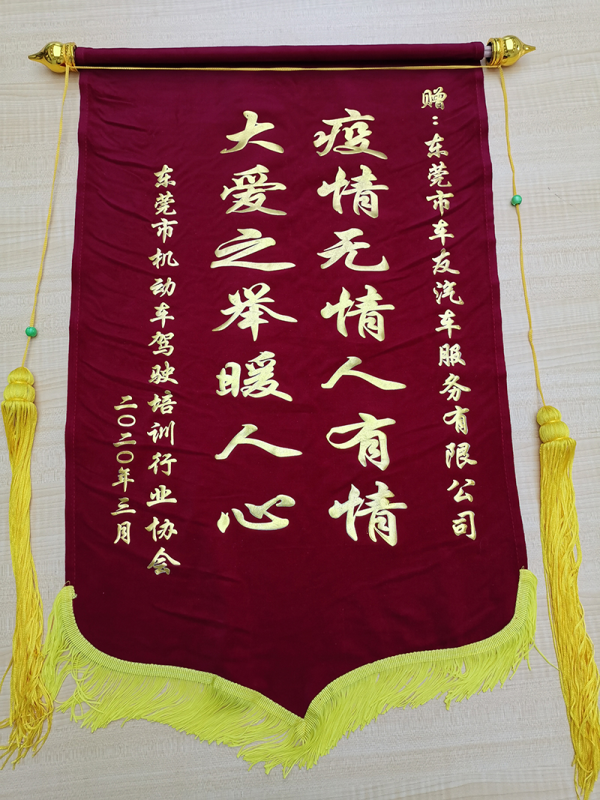 赠：东莞市车友汽车服务有限公司
疫情无情人有情
大爱之举暖人心
东莞市机动车驾驶培训行业协会
二〇二〇年三月